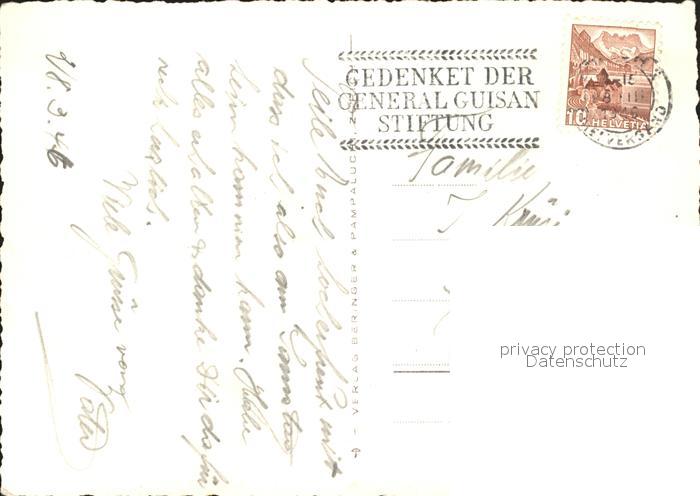 9/8. 3. 46
Teile Euch höflich mit
dass ich also am Samstag
heim kommen kann. Habe
alles erhalten & danke Dir dafür
recht herzlich.
Viele Grüsse von
Vater
— VERLAG BERINGER & PAMPALUCHI,
GEDENKET DER
GENERAL GUISAN
STIFTUNG
10 HELVETIA
Familie
J.
privacy protection
Datenschutz